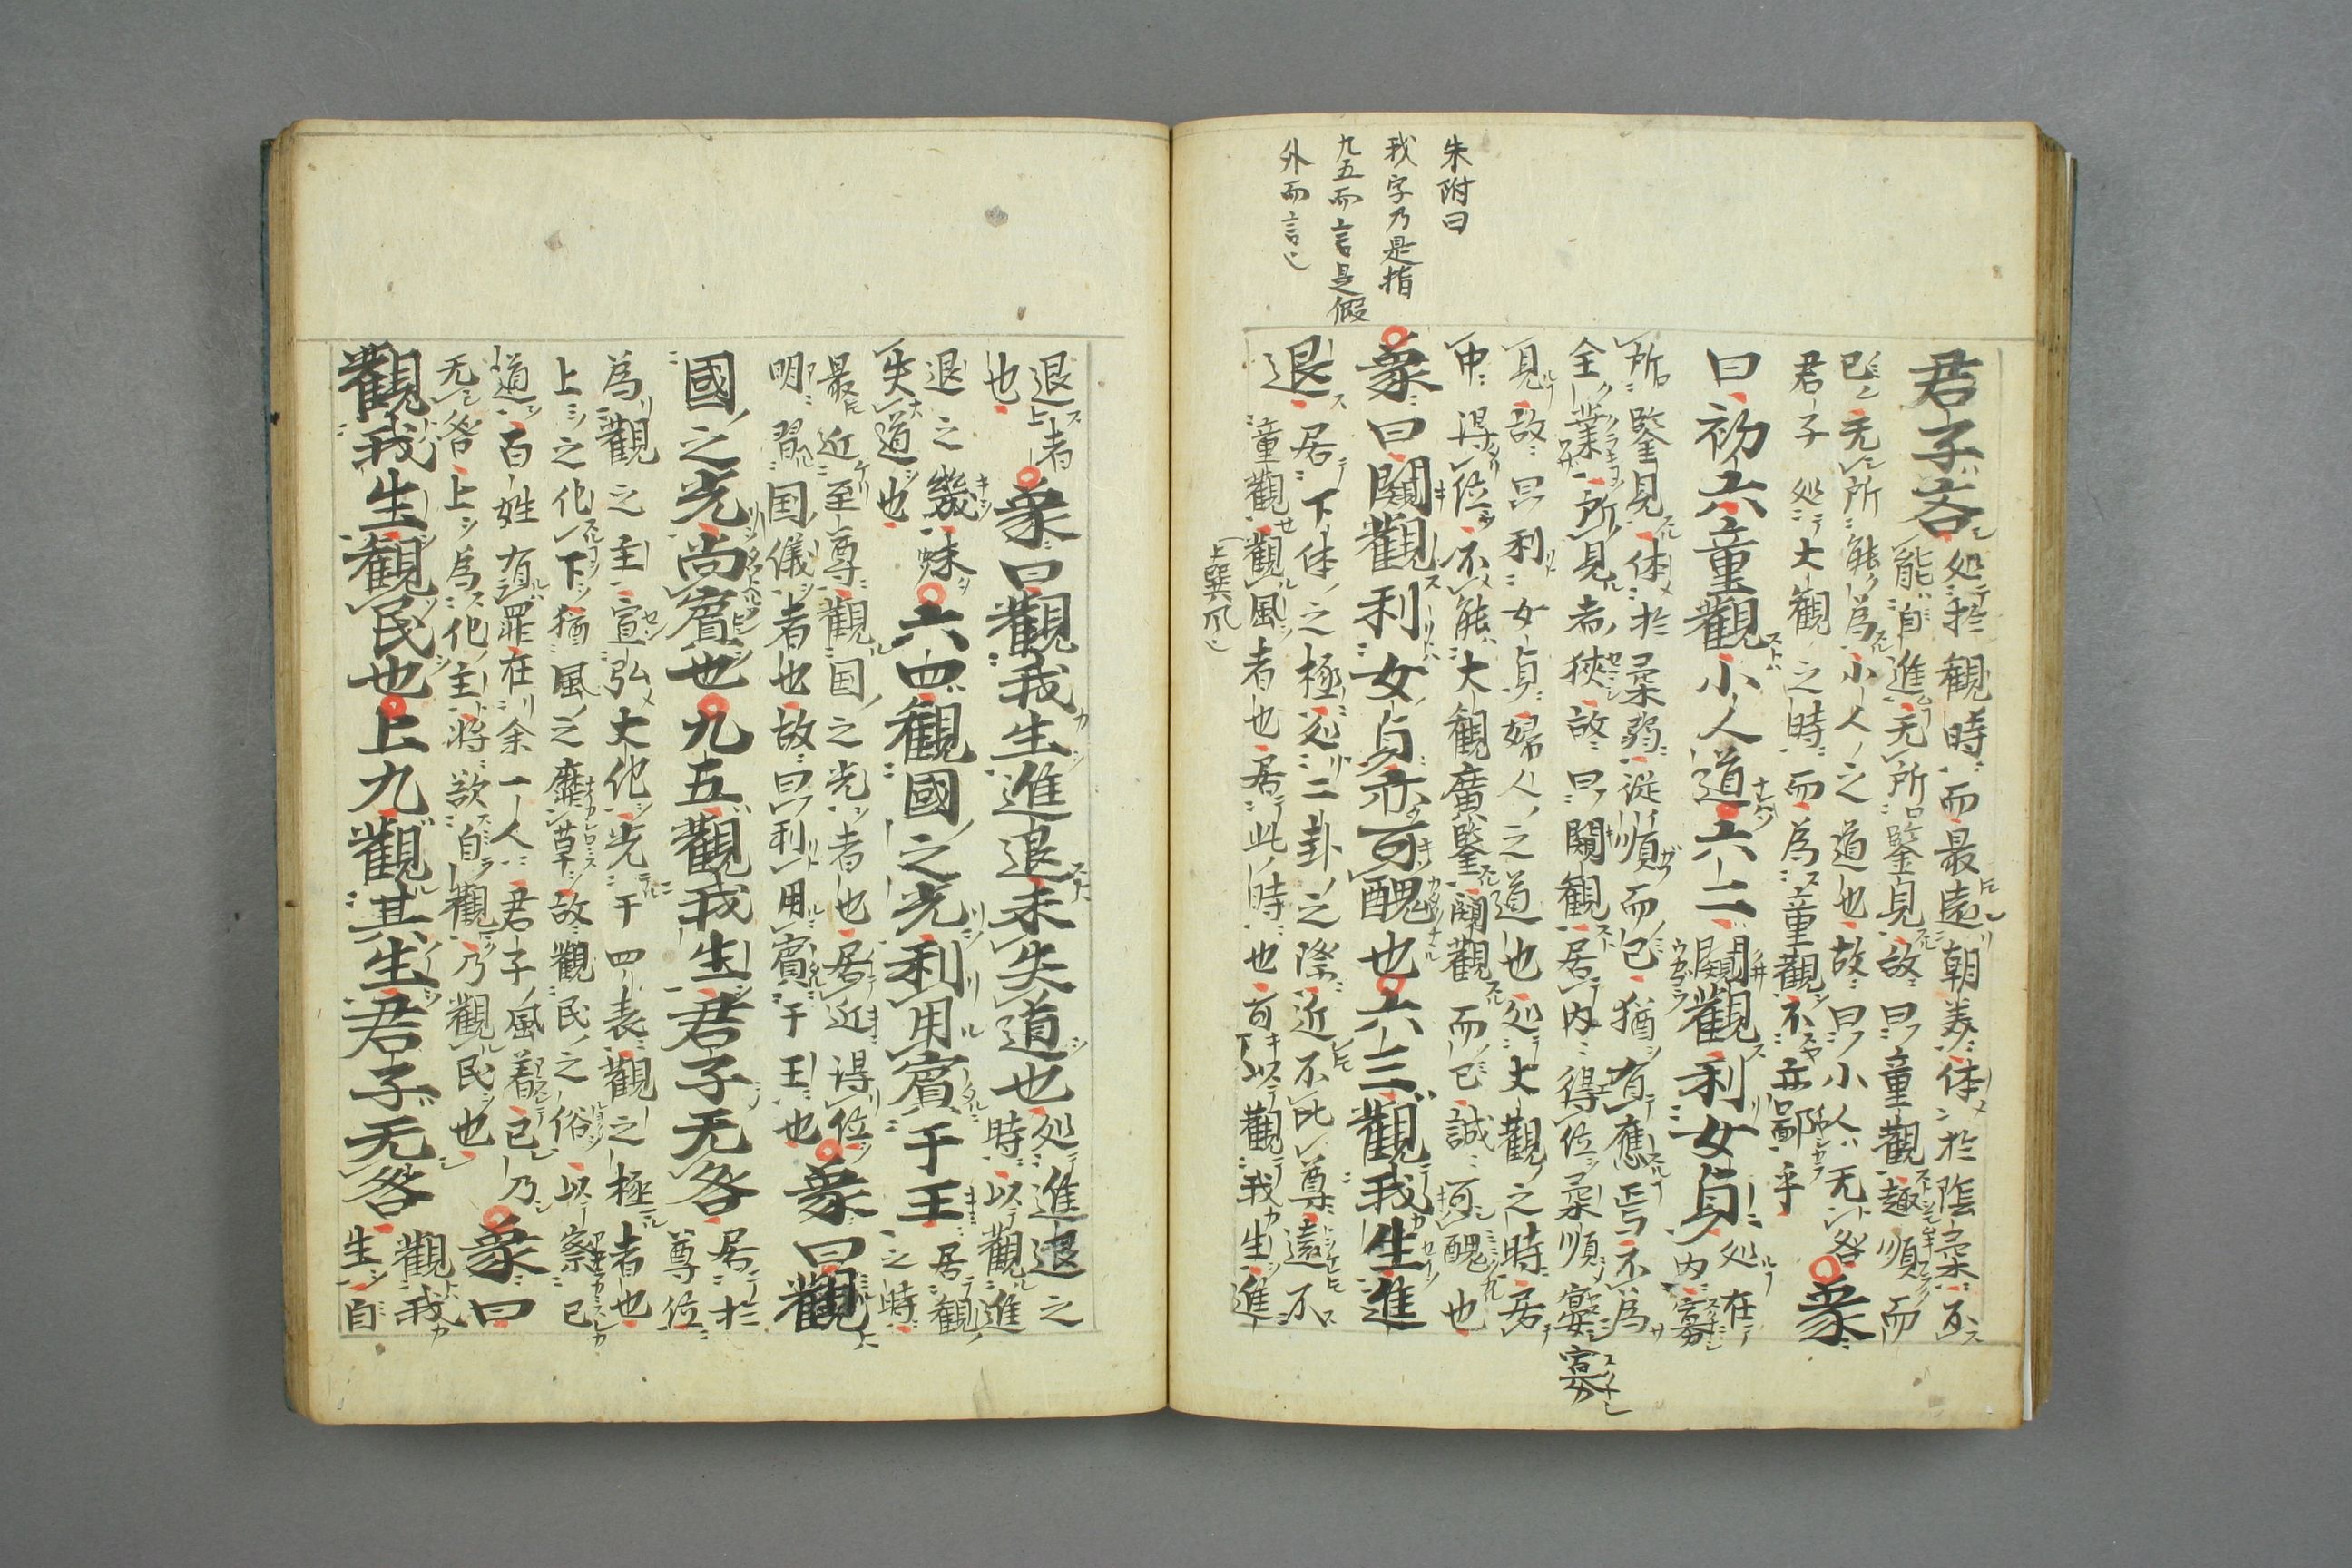 朱附曰
我字乃是指
九五而言是假
外而言之
君子吝処於観時而最遠朝美体於陰柔不
能自進无所鑒見故曰童觀趣順而
已无所能為小人之道也故曰小人无咎
君子処大観之時而為童觀不亦鄙乎象
曰初六童觀小人道六二闚觀利女貞処在
内寡
所鑒見体於柔弱從順而已猶有應焉不為
全業所見者狹故曰闚觀居内得位柔順寡
寡
見故曰利女貞婦人之道也処大觀之時居
中得位不能大觀廣鑒闚觀而已誠可醜也
象曰闚觀利女貞亦可醜也六三觀我生進
退居下体之極処二卦之際近不比尊遠不
童觀觀風者也居此時也可以觀我生進
上巽風之
退者象曰觀我生進退未失道也処進退之
也時以觀進
退之幾未六四観國之光利用賓于王居觀
失道也之時
最近至尊觀国之光者也居近得位
明習国儀者也故曰利用賓于王也象曰觀
國之光尚賓也九五觀我生君子无咎居於
尊位
為觀之主宣弘大化光于四表觀之極者也
上之化下猶風之靡草故觀民之俗以察己
道百姓有罪在余一人君子風着己乃
无咎上為化主将欲自觀乃觀民也象曰
觀我生觀民也上九觀其生君子无咎觀我
生自